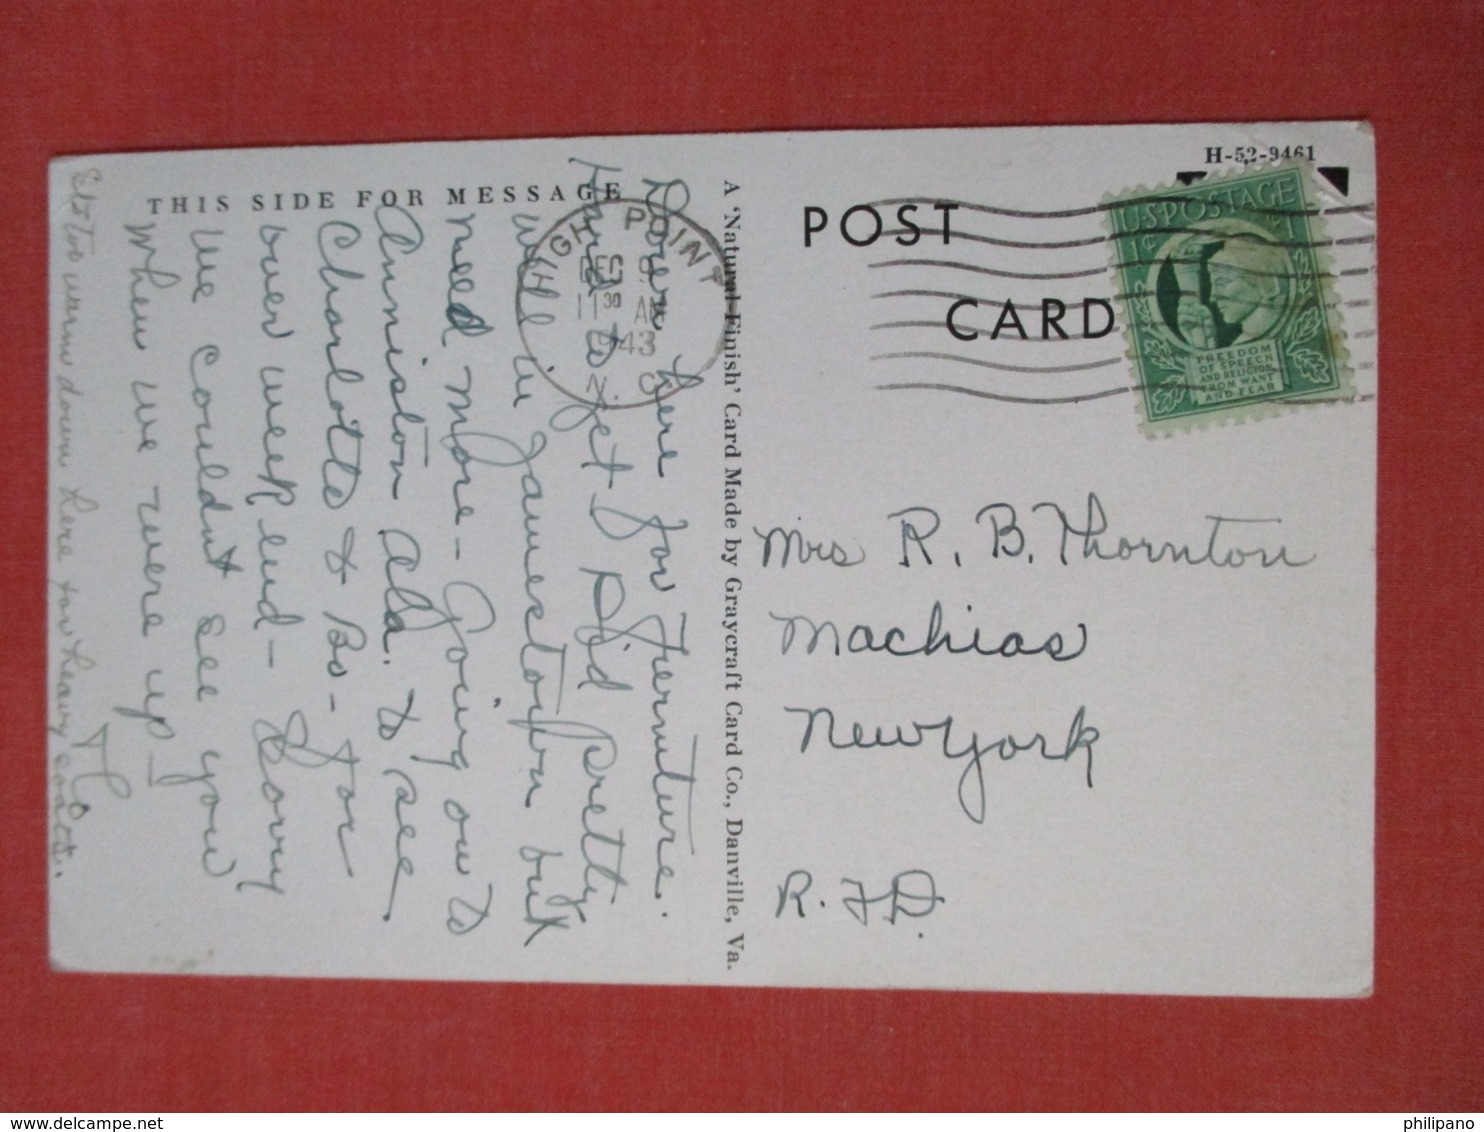 H-52-9461
THIS SIDE FOR MESSAGE
POST
CARD
U.S. POSTAGE
1¢
FREEDOM
OF SPEECH
AND RELIGION,
FROM WANT
AND FEAR
HIGH POINT
9
11 30 A
1943
N C
A 'Natural-Finish' Card Made by Graycraft Card Co., Danville, Va.
Down here for Furniture.
Hard to get & Did pretty
well in Jamestown but
need more - Going on to
Anniston Ala. to see
Charlotte & Bo - for
over week end - Sorry
we couldnt see you
when we were up -
Its too warm down here for heavy coats.
Mrs R. B. Thornton
Machias
New York
R. F D.
philipano
delcampe.net